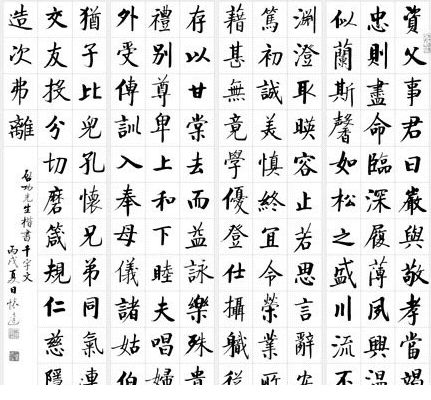 資父事君曰嚴與敬孝當竭
忠則盡命臨深履薄夙興溫
似蘭斯馨如松之盛川流不
淵澄取暎容止若思言辭安
篤初誠美慎終宜令榮業所
藉甚無竟學優登仕攝職從
存以甘棠去而益詠樂殊貴
禮別尊卑上和下睦夫唱婦
外受傅訓入奉母儀諸姑伯
猶子比兒孔懷兄弟同氣連
交友投分切磨箴規仁慈隱
造次弗離
啟功先生楷書千字文
丙戌夏日